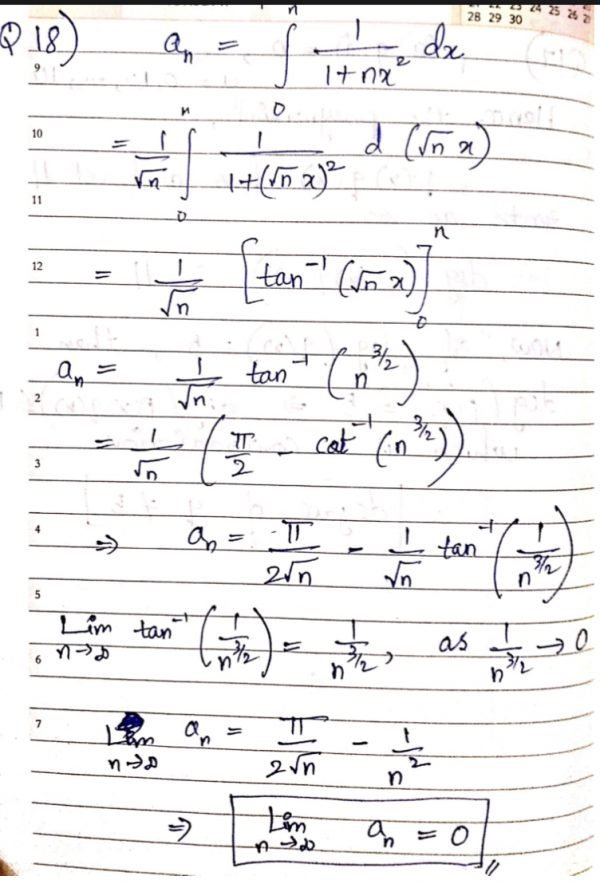 22 23 24 25 26 2
28 29 30
Q 18) a_n = ∫_0^n 1/(1+nx²) dx
9
10 = 1/√n ∫_0^n 1/(1+(√n x)²) d (√n x)
11
12 = 1/√n [tan⁻¹ (√n x)]_0^n
1
a_n = 1/√n tan⁻¹ (n^{3/2})
2
= 1/√n (π/2 - cot⁻¹ (n^{3/2}))
3
4 ⇒ a_n = π/(2√n) - 1/√n tan⁻¹ (1/n^{3/2})
5
Lim_{n→∞} tan⁻¹ (1/n^{3/2}) = 1/n^{3/2}, as 1/n^{3/2} → 0
6
7 Lim_{n→∞} a_n = π/(2√n) - 1/n²
⇒ Lim_{n→∞} a_n = 0 //